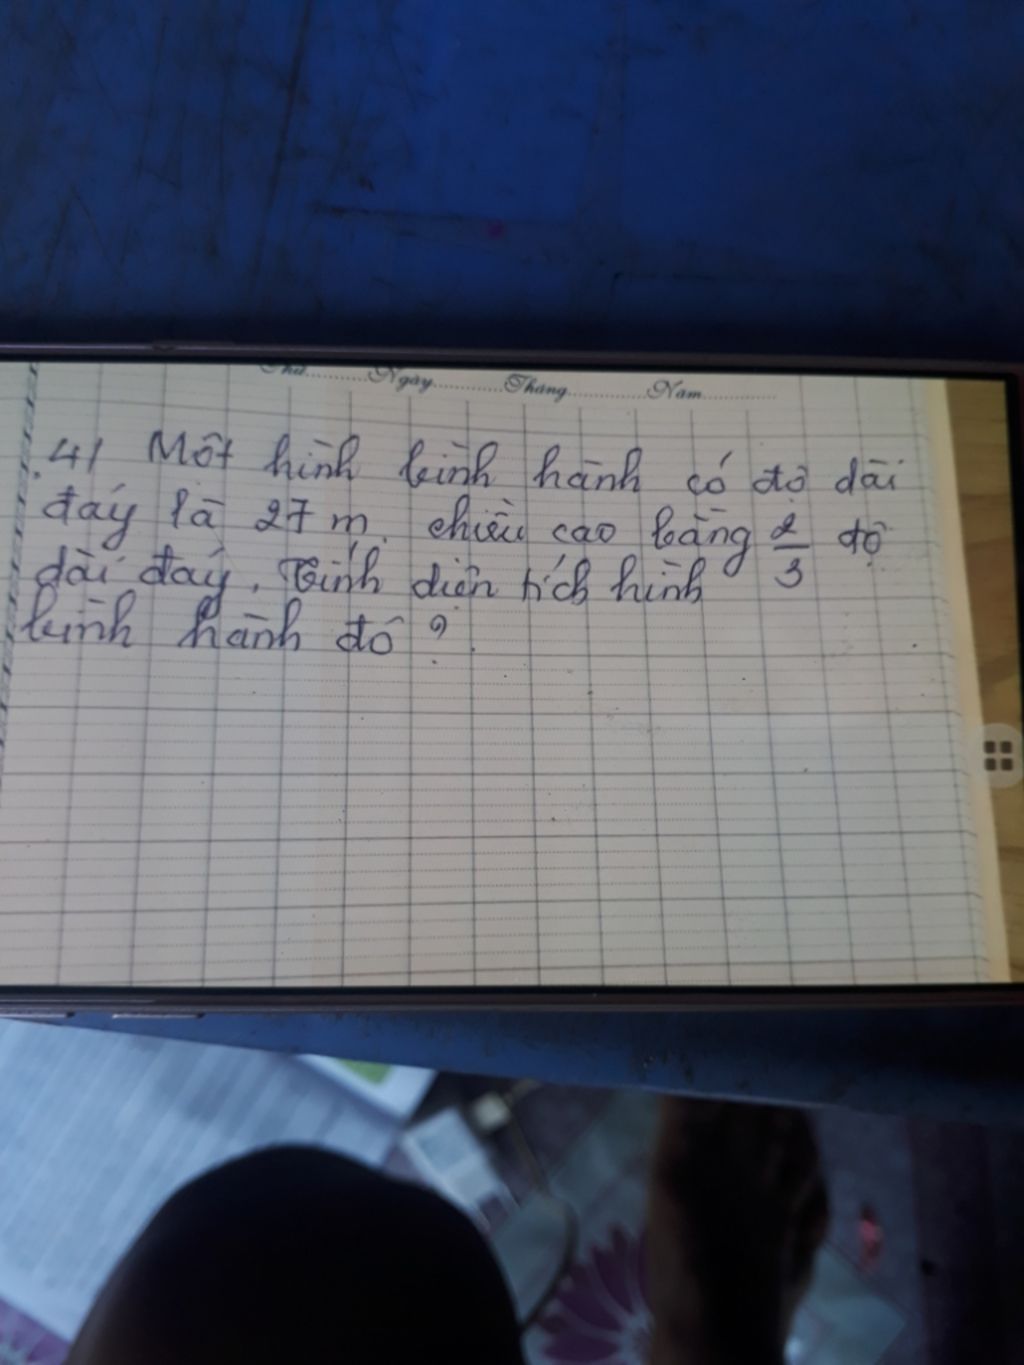 Thứ............Ngày............Tháng............Năm............
4/ Một hình bình hành có độ dài
đáy là 27 m. chiều cao bằng 2/3 độ
dài đáy. Tính diện tích hình
bình hành đó ?